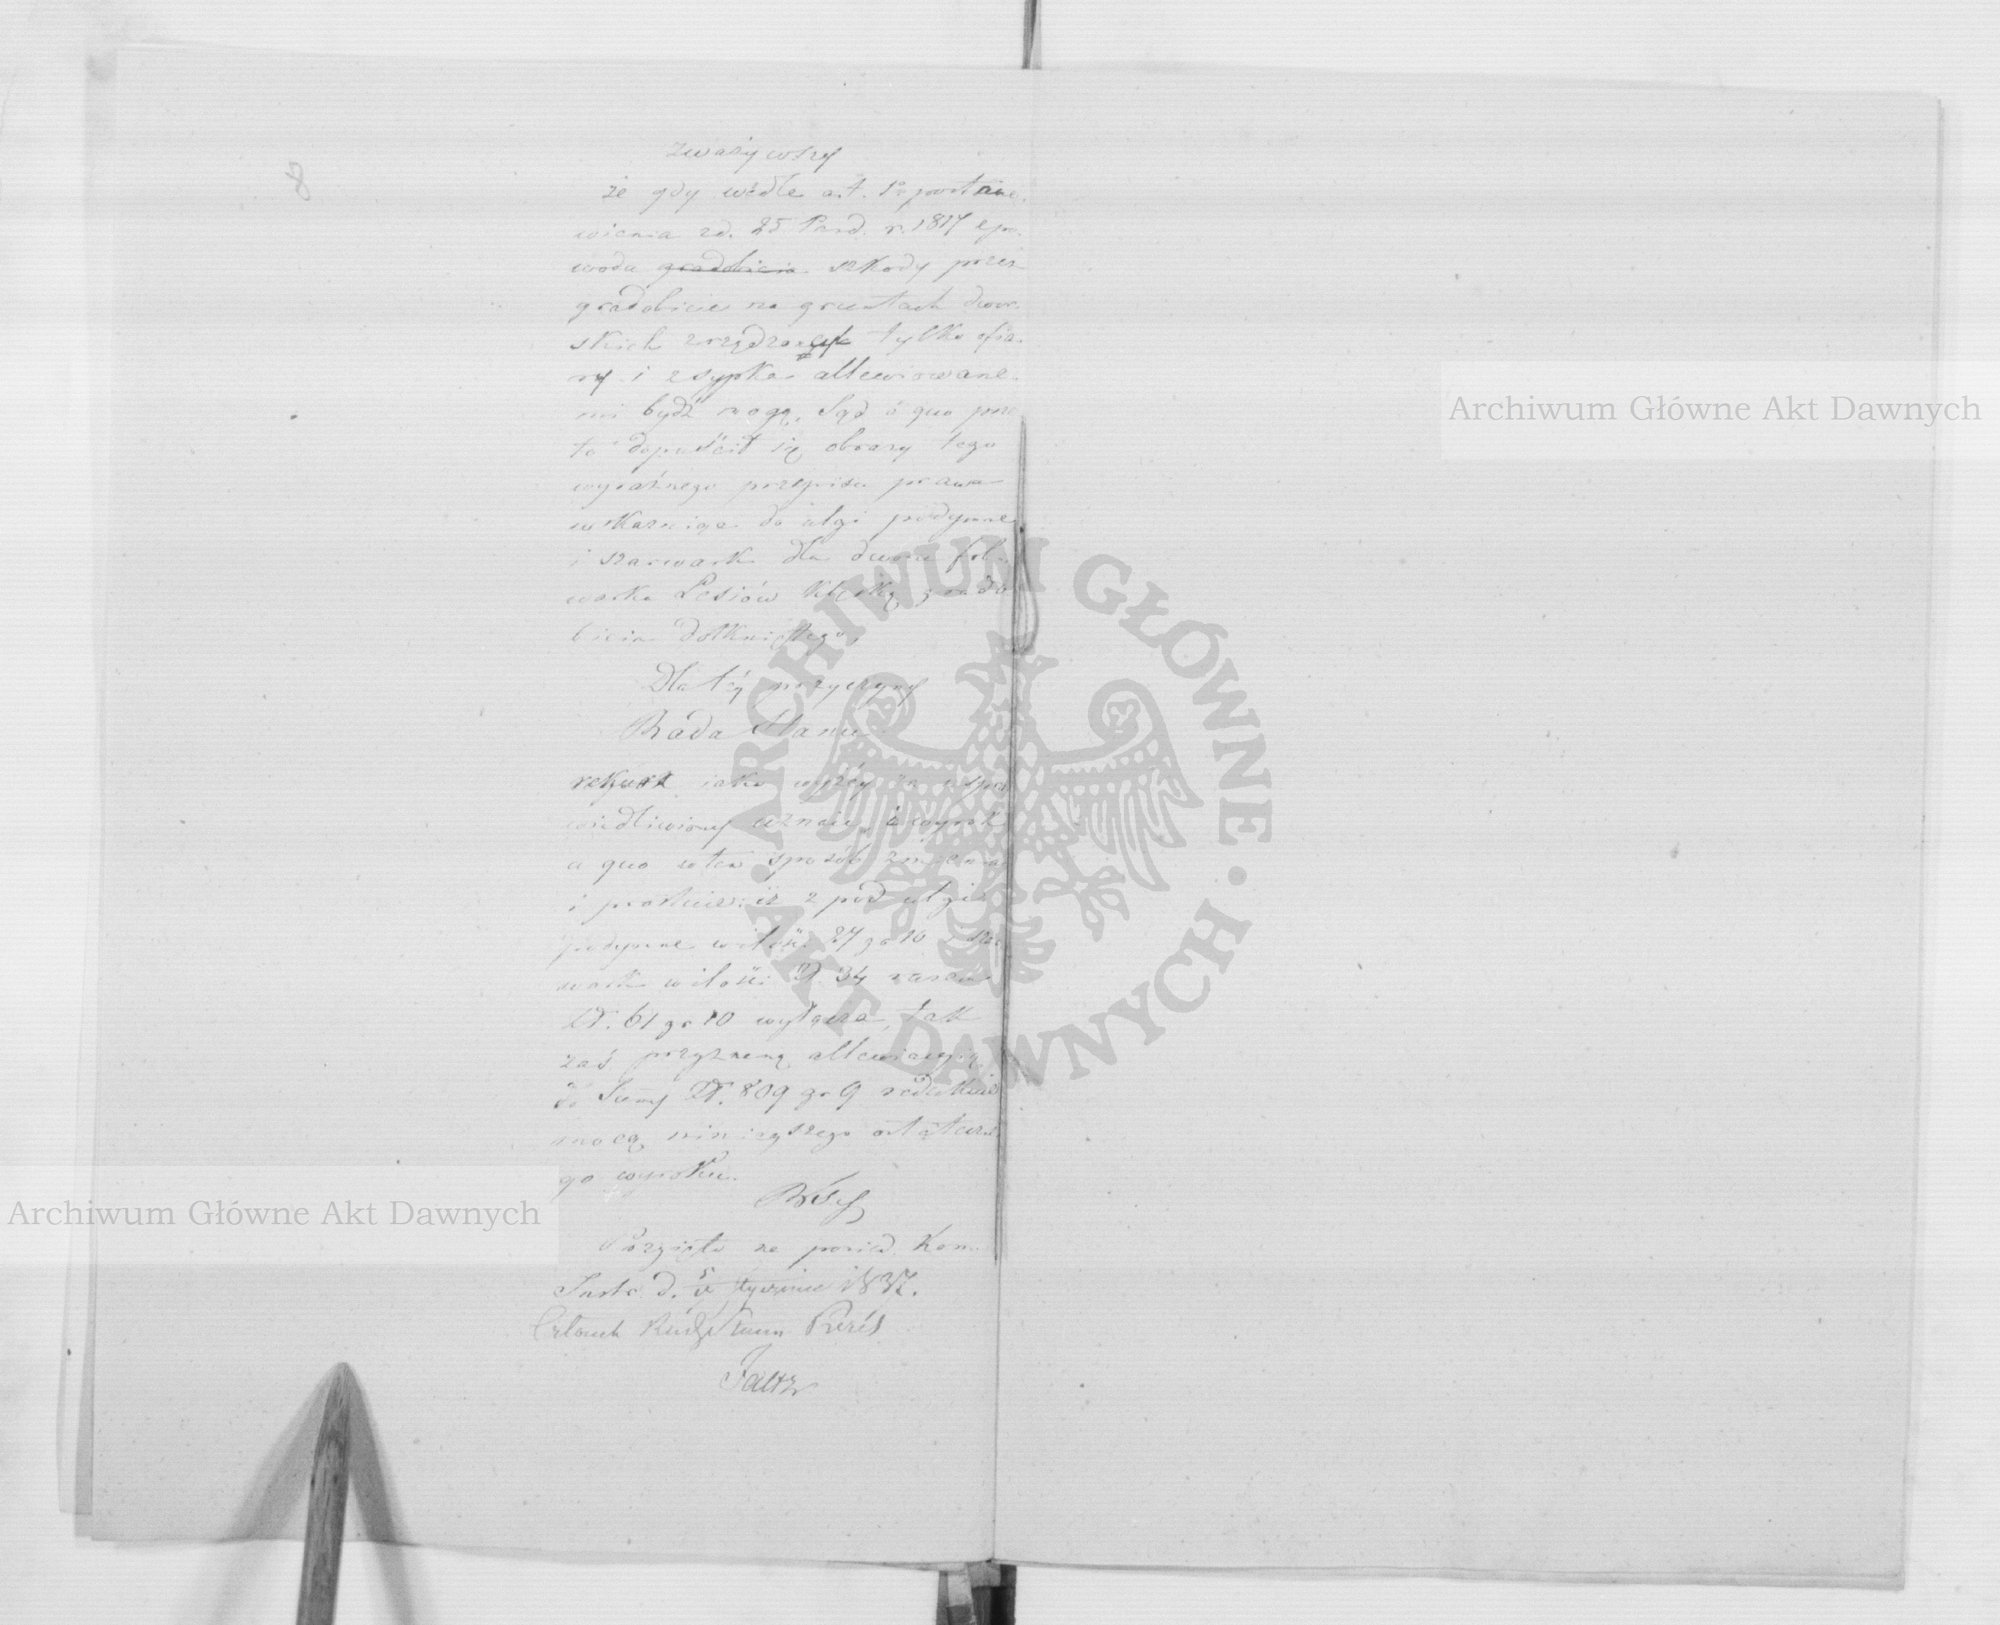 8
zważywszy
że gdy wedle art. 1o postano-
wienia z d. 25 Paźd. r. 1817 z po-
wodu gradobicia szkody przez
gradobicie na gruntach dwor-
skich zrządzonych tylko ofia-
ry i zsypka allewiowane-
mi bydź mogą, Sąd a quo prze
to dopuścił się obrazy tego
wyraźnego przepisu prawa
wskazując do ulgi podymne
i szarwark dla dworu fol-
warku Lesiów klęską grado
bicia dotkniętego,
Dla téj przyczyny
Rada Stanu
rekurs jako wyżéj za uspra
wiedliwiony uznaie, a wyrok
a quo w ten sposób zmienia
i prostuie: iż z pod ulgi
podymne w ilości 27 gr 10 i szar
wark w ilości Zł. 34 razem
Zł. 61 gr 10 wyłącza, tak
zaś przyznaną allewiacyię
do Summy Zł. 809 gr 9 redukuie
mocą ninieyszego ostateczne
go wyroku.
Przyięto na posied. Kom.
Instr. d. stycznia 1837.
Członek Rady Stanu Prezes
Archiwum Główne Akt Dawnych
Archiwum Główne Akt Dawnych
ARCHIWUM GŁÓWNE · AKT DAWNYCH ·